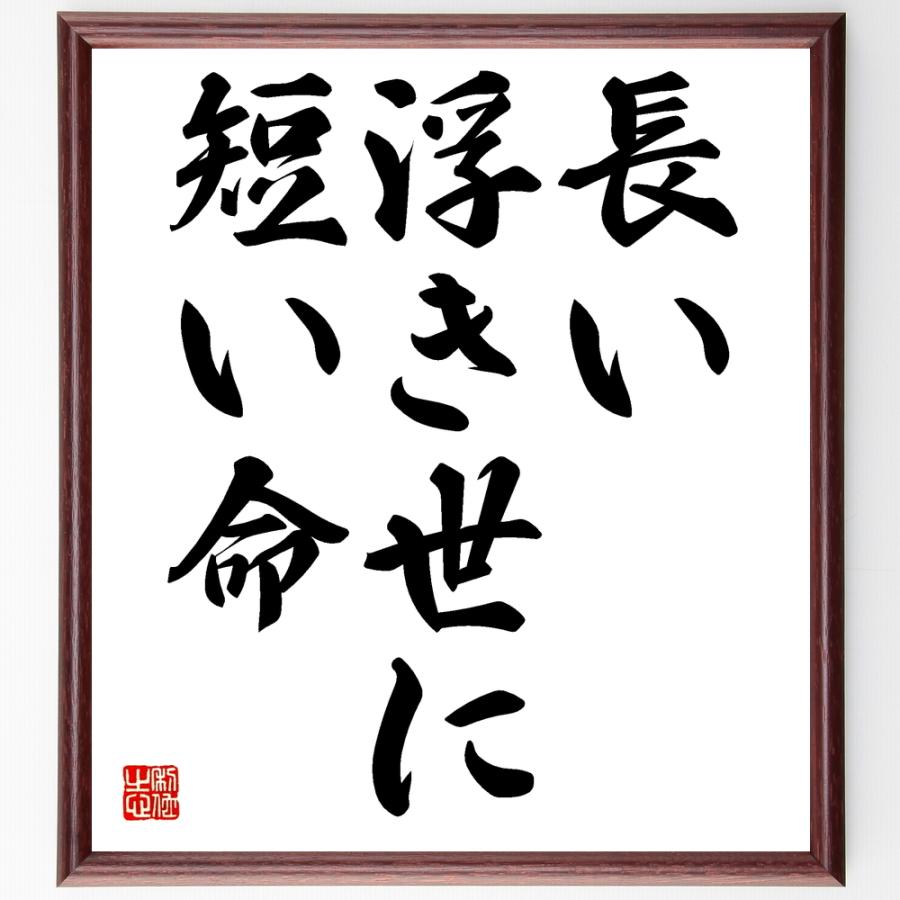 長い
浮き世に
短い命